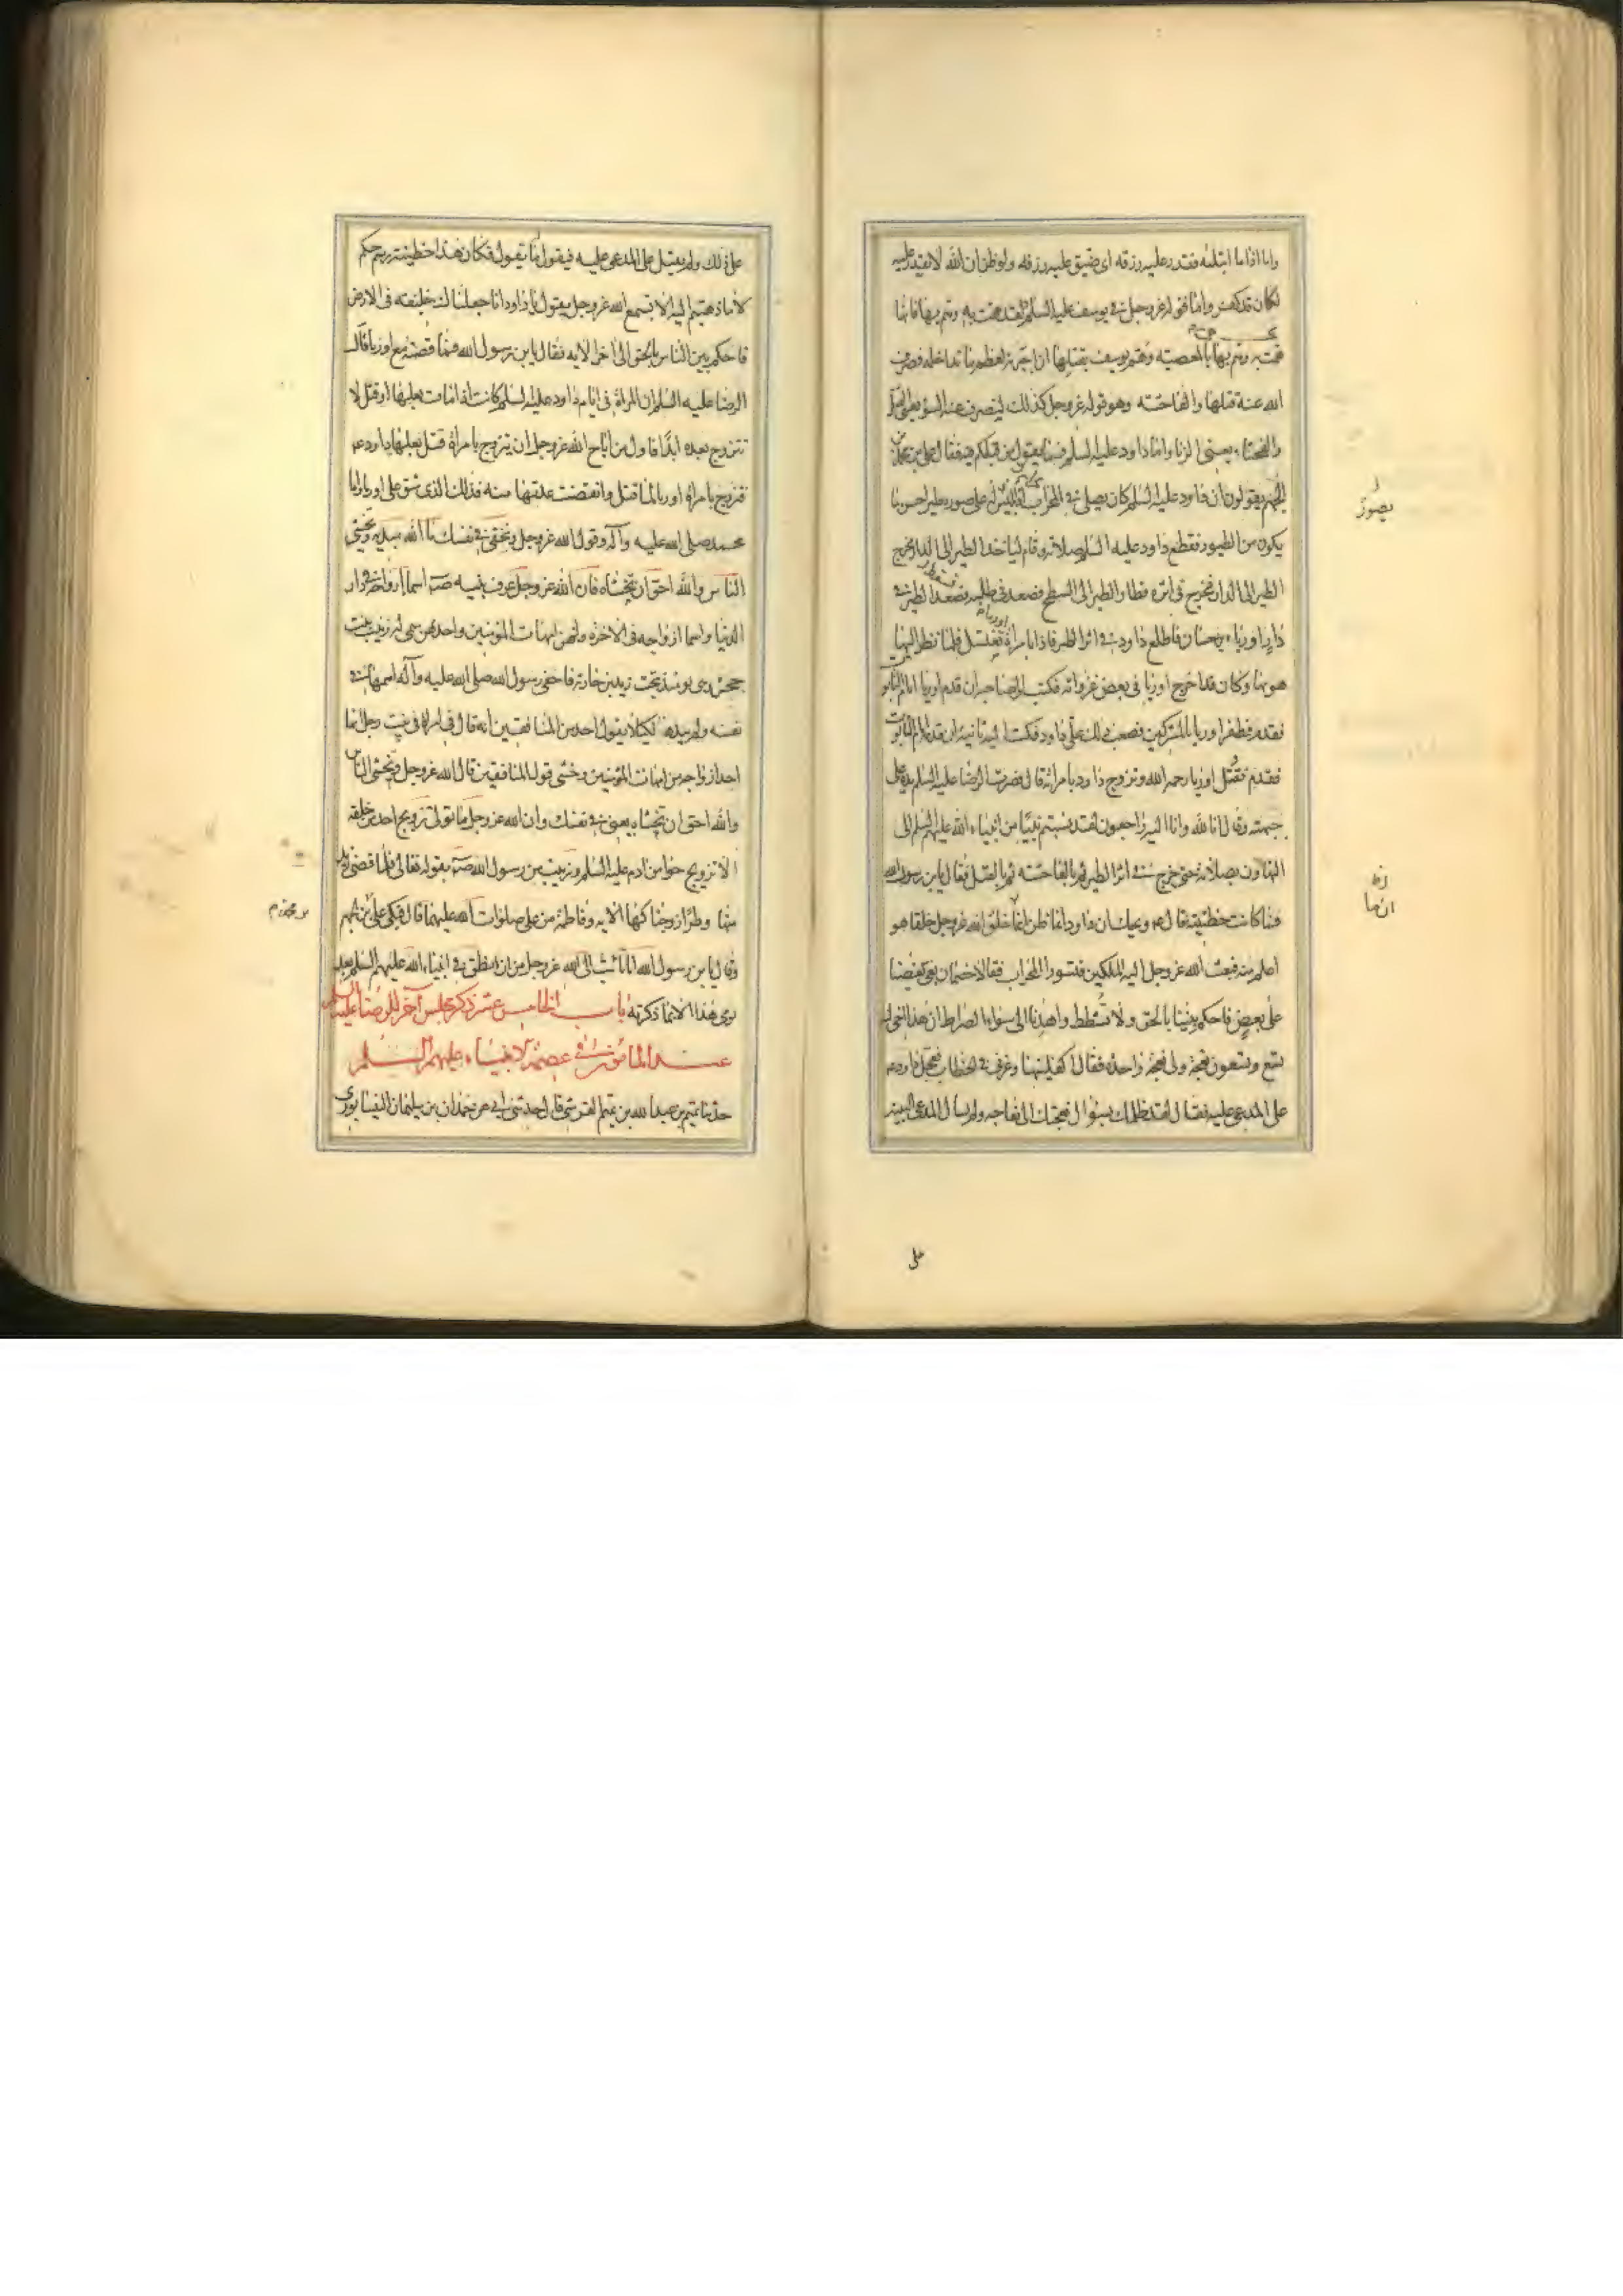 واما اذا ما ابتلیه فقدر علیه رزقه ای ضیق علیه رزقه ولو ظن ان الله لا یقدر علیه
لکان قد کفر واما قوله عز وجل فی یوسف علیه السلم ولقد همت به وهم بها فانها
همت به وهم بها بالمعصیه وهم یوسف بقتلها ان اجبرته لعظم ما تداخله فصرف
الله عنه قتلها والفاحشه وهو قوله عز وجل کذلک لنصرف عنه السوء یعنی القتل
والفحشاء یعنی الزنا واما داود علیه السلم فما یقول من قبلکم فیه فقال علی بن محمد بن
الجهم یقولون ان داود علیه السلم کان یصلی فی المحراب ابلیس علی صوره طیر احسن ما
یکون من الطیور فقطع داود علیه السلم صلاته وقام لیاخذ الطیر الی الدار فخرج
الطیر الی الدار فخرج فی اثره فطار الطیر الی السطح فصعد فی طلبه فسقط الطیر فی
دار اوریاء بن حنان فاطلع داود فی اثر الطیر فاذا بامراة اوریاء تغتسل فلما نظر الیها
هویها وکان قد اخرج اوریا فی بعض غزواته فکتب الی صاحبه ان قدم اوریا امام التابوت
فقدم فظفر اوریا بالمشرکین فصعب ذلک علی داود فکتب الیه ثانیة ان قدمه امام التابوت
فقدم فقتل اوریا رحمه الله وتزوج داود بامراته قال فضرب الرضا علیه السلم یده علی
جبهته وقال انا لله وانا الیه راجعون لقد نسبتم نبیا من انبیاء الله علیهم السلم الی
التهاون بصلاته حتی خرج فی اثر الطیر ثم بالفاحشه ثم بالقتل فقال یابن رسول الله
فما کانت خطیئته فقال ویحک ان داود انما ظن انما خلق الله عز وجل خلقا هو
اعلم منه فبعث الله عز وجل الیه الملکین فتسورا المحراب فقالا خصمان بغی بعضنا
علی بعض فاحکم بیننا بالحق ولا تشطط واهدنا الی سواء الصراط ان هذا اخی له
تسع وتسعون نعجة ولی نعجة واحده فقال اکفلنیها وعزنی فی الخطاب فعجل داود
علی المدعی علیه فقال لقد ظلمک بسؤال نعجتک الی نعاجه ولم یسال المدعی البینه
علی
علی ذلک ولم یقبل علی المدعی علیه فیقول ما تقول فکان هذا خطیئة رسم حکم
لا ما ذهبتم الیه الا تسمع الله عز وجل یقول یا داود انا جعلناک خلیفه فی الارض
فاحکم بین الناس بالحق الی اخر الایه فقال یابن رسول الله فما قصته مع اوریا قال
الرضا علیه السلم ان المراة فی ایام داود علیه السلم کانت اذا مات بعلها او قتل لا
تتزوج بعده ابدا فاول من اباح الله عز وجل ان یتزوج بامراة قتل بعلها داود
فتزوج بامراة اوریا لما قتل وانقضت عدتها منه فذلک الذی شق علی اوریا واما
محمد صلی الله علیه وآله وقول الله عز وجل وتخفی فی نفسک ما الله مبدیه وتخشی
الناس والله احق ان تخشاه فان الله عز وجل عرف نبیه اسماء ازواجه فی دار
الدنیا واسماء ازواجه فی الاخرة وانهن امهات المؤمنین واحدهن سمی له زینب بنت
جحش وهی یومئذ تحت زید بن حارثه فاخفی رسول الله صلی الله علیه وآله اسمها فی
نفسه ولم یبده لکیلا یقول احد من المنافقین انه قال فی امراة فی بیت رجل انها
احد ازواجه من امهات المؤمنین وخشی قول المنافقین قال الله عز وجل وتخشی الناس
والله احق ان تخشاه یعنی فی نفسک وان الله عز وجل ما تولی تزویج احد من خلقه
الا تزویج حوا من ادم علیه السلم وزینب من رسول الله بقوله تعالی فلما قضی زید
منها وطرا زوجناکها الایه وفاطمة من علی صلوات الله علیهما قال فبکی علی بن جهم
وقال یابن رسول الله انا تائب الی الله عز وجل من ان انطق فی انبیاء الله علیهم السلم بعد
یومی هذا الا بما ذکرته باب الخامس عشر ذکر مجلس آخر للرضا علیه السلم
عند المامون فی عصمة الانبیاء علیهم السلم
حدثنا تمیم بن عبدالله بن تمیم القرشی قال حدثنی ابی عن حمدان بن سلیمان النیسابوری